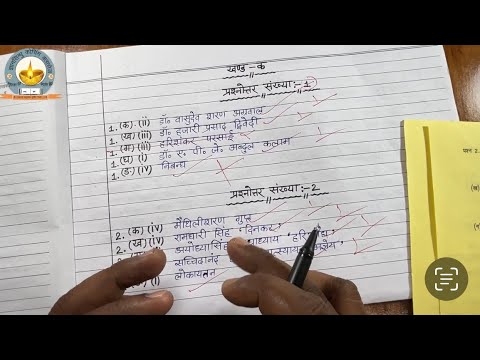 खण्ड-क
प्रश्नोत्तर संख्या:-1
1. (क) (ii) डॉ० वासुदेव शरण अग्रवाल
1. (ख) (iii) डॉ० हजारी प्रसाद द्विवेदी
1. (ग) (iii) हरिशंकर परसाई
1. (घ) (i) डॉ० ए. पी. जे. अब्दुल कलाम
1. (ङ) (iv) निबन्ध
प्रश्नोत्तर संख्या:-2
2. (क) (iv) मैथिलीशरण गुप्त
2. (ख) (iv) रामधारी सिंह 'दिनकर'
अयोध्यासिंह
सच्चिदानंद
(i) लोकायतन